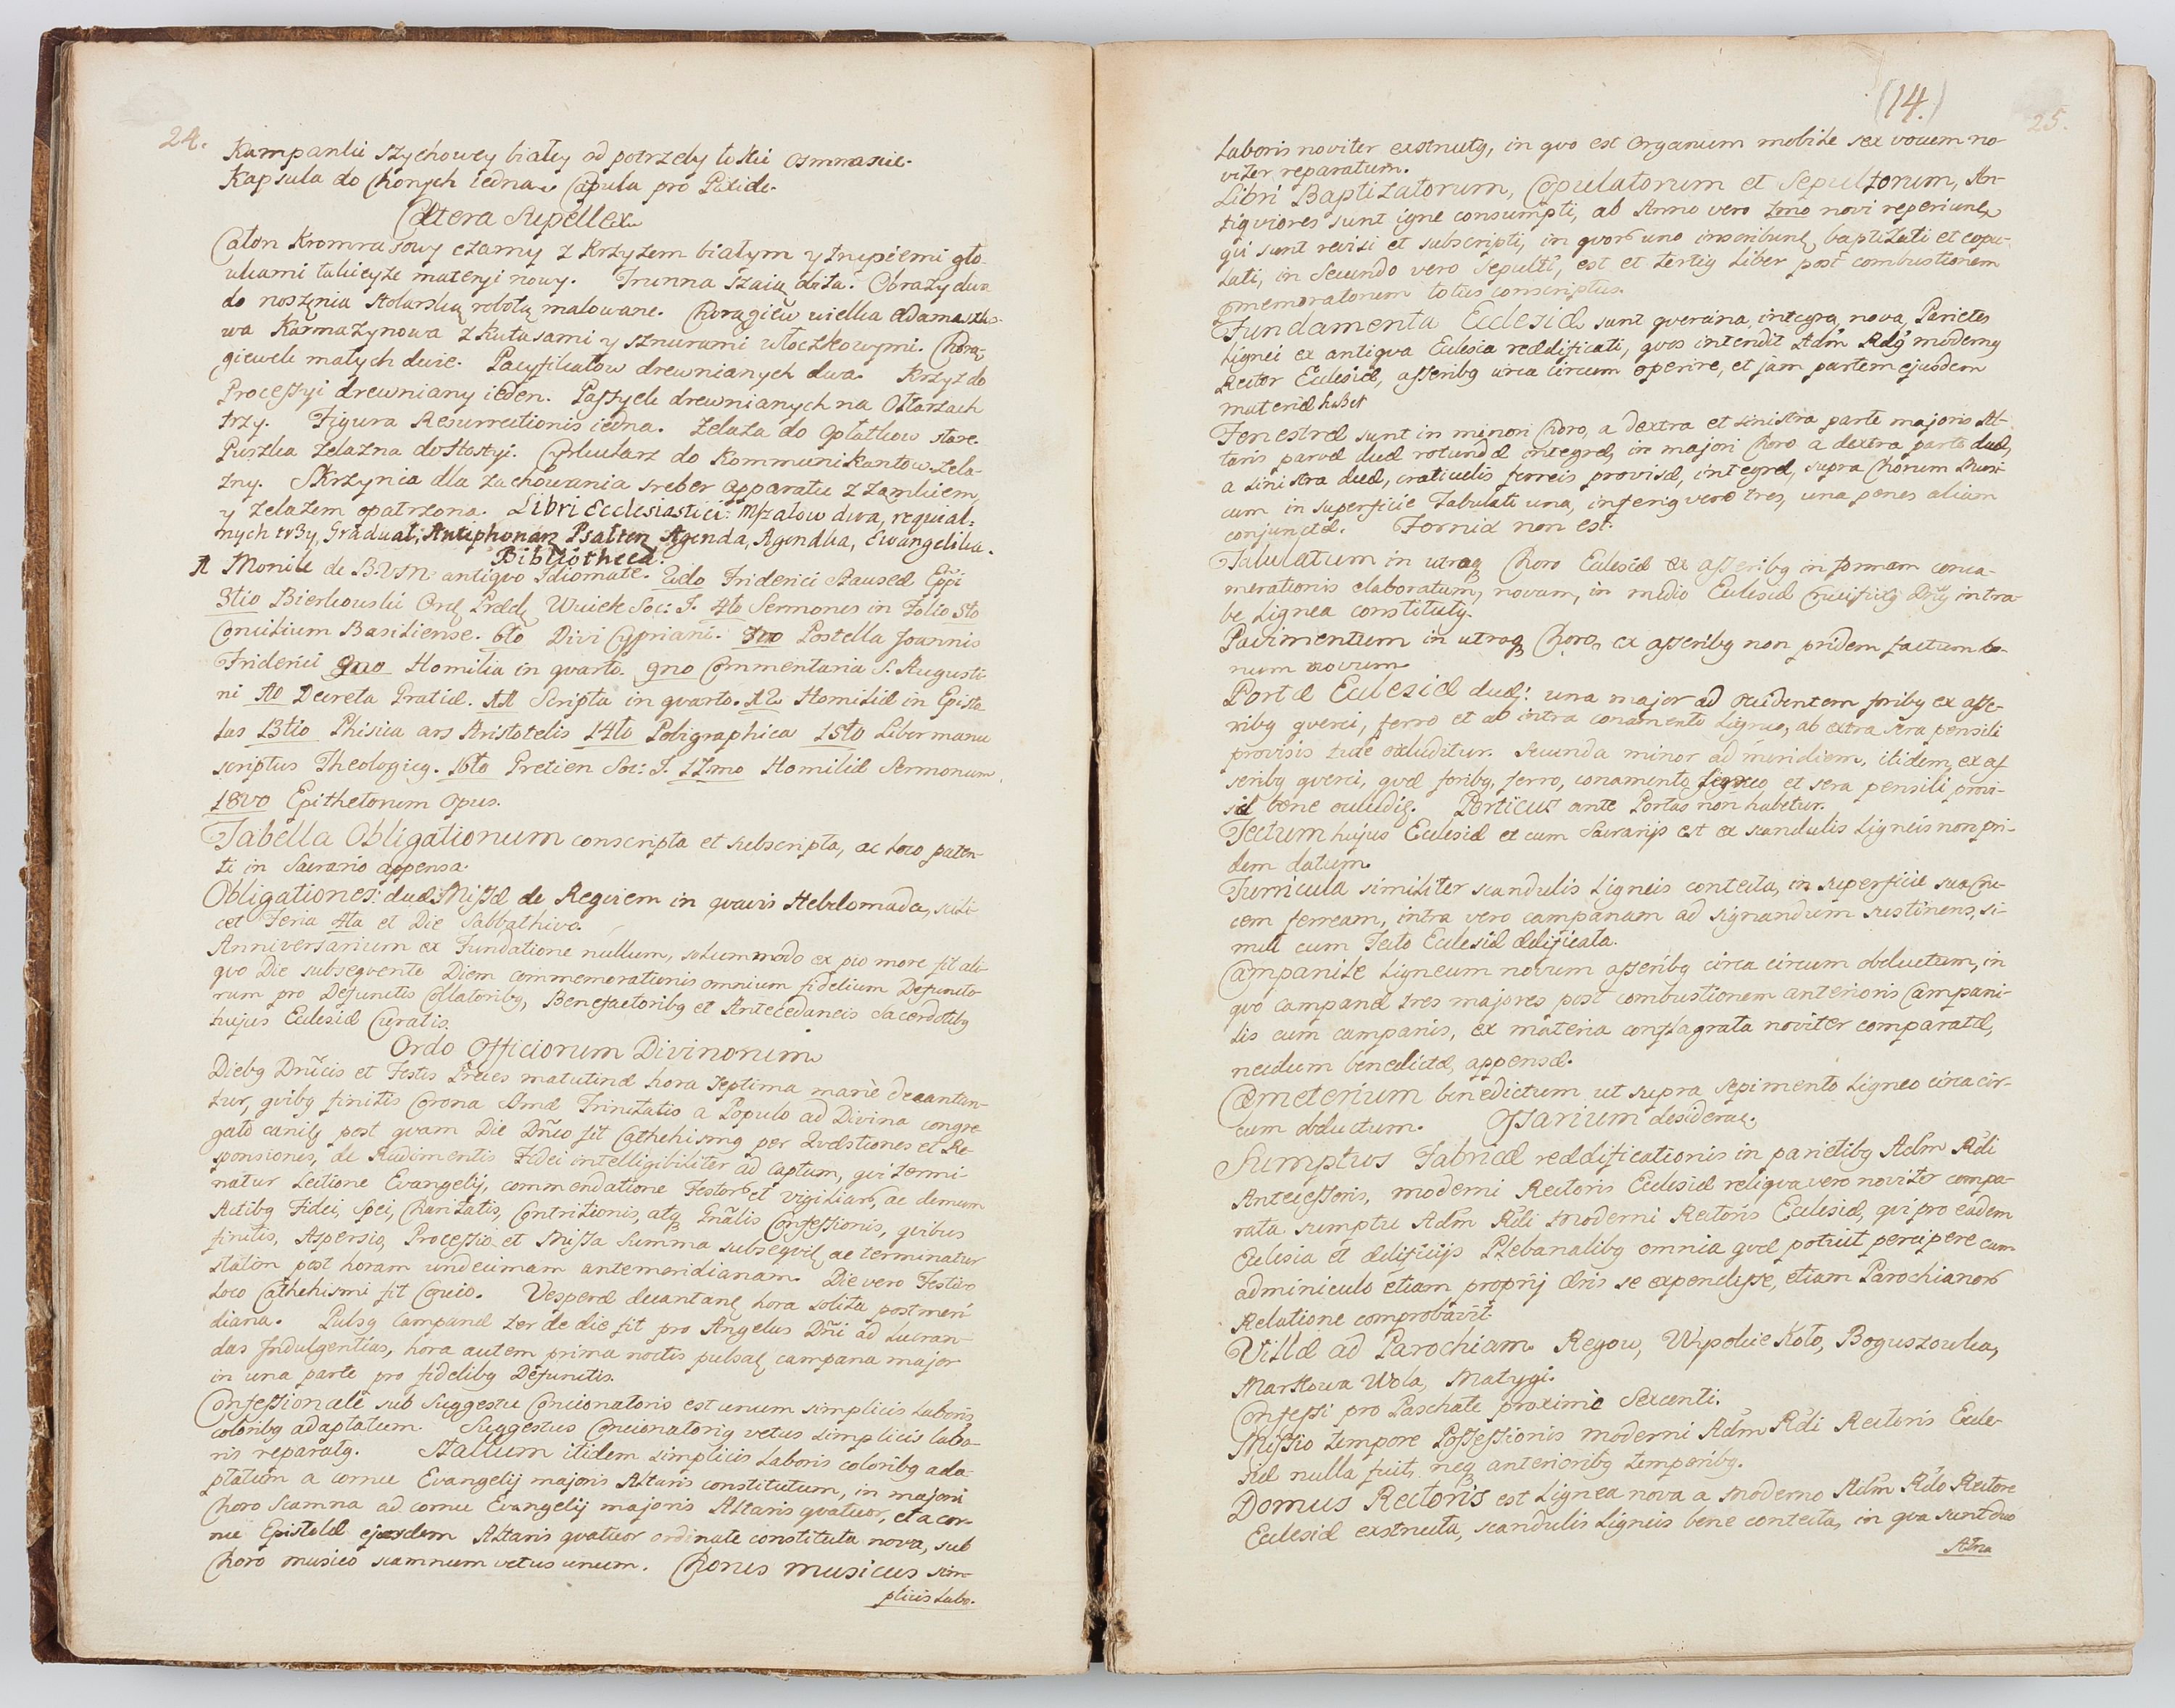 24.
Kampanki szychowey białey od potrzeby łokci osmnascie.
Kapsula do Chorych iedna. Capula pro Pixide.
Cætera Supellex
Caton Kromrasowy czarny z krzyżem białym y trupiemi gło-
wkami takieyże materyi nowy. Trunna szaią bita. Obrazy dwa
do noszęnia stolarską robotą malowane. Chorągiew wielka adamaszko-
wa Karmazynowa z kutasami y sznurami włoczkowymi. Chorą-
giewek małych dwie. Pacyfikałow drewnianych dwa. Krzyż do
Processyi drewniany ieden. Passyek drewnianych na Ołtarzach
trzy. Figura Resurrectionis iedna. Zelaza do Opłatkow stare.
Puszka żelazna do Hostyi. Cyrkularz do Kommunikantow żela-
zny. Skrzynia dla zachowania sreber apparatu z zamkiem,
y żelazem opatrzona. Libri Ecclesiastici: Mszałow dwa, requial-
nych trzy, Graduał, Antiphonarz Psałterz Agenda, Agendka, Ewangeliczka.
Bibliotheca.
1 Monile de B.V.M. antiquo Idiomate. 2do Friderici Nauseæ Eppi
3tio Bierkowski Ord. Præd. Wuiek Soc: J. 4to Sermones in Folio 5to
Concilium Basiliense. 6to Divi Cypriani. 7mo Postella Joannis
Friderici 8vo Homilia in quarto. 9no Commentaria S. Augusti-
ni 10 Decreta Gratiæ. 11 Scripta in quarto. 12 Homiliæ in Episto-
las 13tio Phisica ars Aristotelis 14to Poligraphica 15to Liber manu
scriptus Theologicg. 16to Pretien Soc: J. 17mo Homiliæ Sermonum,
18vo Epithetorum Opus.
Tabella Obligationum conscripta et subscripta, ac loco paten-
ti in Sacrario appensa.
Obligationes: duæ Missæ de Requiem in quavis Hebdomada, scili-
cet Feria 4ta et Die Sabbathivo.
Anniversarium ex Fundatione nullum, solummodo ex pio more fit ali-
quo Die subsequente Diem commemorationis omnium fidelium Defuncto-
rum pro Defunctis Collatoribg, Benefactoribg et Antecedaneis Sacerdotibg
hujus Ecclesiæ Curatis.
Ordo Officiorum Divinorum
Diebg Dnicis et Festis Preces matutinæ hora septima manè decantan-
tur, quibg finitis Corona Smæ Trinitatis a Populo ad Divina congre-
gato canitr post quam Die Dnico fit Cathehismg per Quæstiones et Re-
sponsiones, de Rudimentis Fidei intelligibiliter ad captum, qui termi-
natur Lectione Evangelij, commendatione Festor et Vigiliar, ac demum
Actibg Fidei, Spei, Charitatis, Contritionis, atq Gnalis Confessionis, quibus
finitis, Aspersio, Processio et Missa Summa subsequitr ac terminatur
statim post horam undecimam antemeridianam. Die vero Festivo
loco Cathehismi fit Concio. Vesperæ decantantr hora solita postmeri-
diana. Pulsg Campanæ ter de die fit pro Angelus Dni ad lucran-
das Indulgentias, hora autem prima noctis pulsatr campana major
in una parte pro fidelibg Defunctis.
Confessionale sub Suggestu Concionatoris est unum simplicis laboris
coloribg adaptatum. Suggestus Concionatorig vetus simplicis labo-
ris reparatg. Stallum itidem simplicis laboris coloribg ada-
ptatum a cornu Evangelij majoris Altaris constitutum, in majori
Choro Scamna ad cornu Evangelij majoris Altaris quatuor, et a cor-
nu Epistolæ ejusdem Altaris quatuor ordinate constituta nova, sub
Choro musico scamnum vetus unum. Chorus musicus sim-
plicis labo-
(14.)
25.
laboris noviter exstructg, in quo est Organum mobile sex vocum no-
viter reparatum.
Libri Baptizatorum, Copulatorum et Sepultorum, An-
tiquiores sunt igne consumpti, ab Anno vero 2mo novi reperiuntr
qui sunt revisi et subscripti, in quor uno inscribuntr baptizati et copu-
lati, in Secundo vero Sepulti, est et tertig Liber post combustionem
memoratorum totus conscriptus.
Fundamenta Ecclesiæ sunt quercina, integra, nova, Parietes
lignei ex antiqua Ecclesia reædificati, quos intendit Adm Rdg modernq
Rector Ecclesiæ, asseribg circa circum operire, et jam partem ejusdem
materiæ habet
Fenestræ sunt in minori Choro, a dextra et sinistra parte majoris Al-
taris parvæ duæ rotundæ integræ, in majori Choro a dextra parte duæ,
a sinistra duæ, craticulis ferreis provisæ, integræ, supra Chorum Musi-
cum in superficie Tabulati una, inferig vero tres, una penes aliam
conjunctæ. Fornix non est.
Tabulatum in utroq Choro Ecclesiæ ex asseribg in formam conca-
merationis elaboratum, novum, in medio Ecclesiæ Crucifixg Dni in tra-
be lignea constitutg.
Pavimentum in utroq Choro, ex asseribg non pridem factum bo-
num novum
Portæ Ecclesiæ duæ: una major ad occidentem foribg ex asse-
ribg querci, ferro et ab intra conamento ligneo, ab extra sera pensili
provisis tute occluditur. Secunda minor ad meridiem, itidem ex as-
seribg querci, quæ foribg, ferro, conamento ligneo et sera pensili provi-
sis bene occluditr. Porticus ante Portas non habetur.
Tectum hujus Ecclesiæ et cum Sacrarijs est ex scandulis ligneis non pri-
dem datum.
Turricula similiter scandulis ligneis contecta, in superficie sua Cru-
cem ferream, intra vero campanam ad signandum sustinens, si-
mul cum Tecto Ecclesiæ ædificata.
Campanile ligneum novum asseribg circa circum obductum, in
quo campanæ tres majores post combustionem anterioris Campani-
lis cum campanis, ex materia conflagrata noviter comparatæ,
necdum benedictæ, appensæ.
Cæmeterium benedictum ut supra sepimento ligneo circa cir-
cum obductum. Ossarium desideratr.
Sumptus Fabricæ reædificationis in parietibg Adm Rdi
Antecessoris, moderni Rectoris Ecclesiæ reliqua vero noviter compa-
rata sumptu Adm Rdi Moderni Rectoris Ecclesiæ, qui pro eadem
Ecclesia et ædificijs Plebanalibg omnia quæ potuit percipere cum
adminiculo etiam proprij æris se expendisse, etiam Parochianor
Relatione comprobavit.
Villæ ad Parochiam Regow, Wysokie Koło, Boguszowka,
Markowa Wola, Matygi.
Confessi pro Paschate proximè Sexcenti.
Missio tempore Possessionis moderni Adm Rdi Rectoris Eccle-
siæ nulla fuit, neq anterioribg temporibg.
Domus Rectoris est lignea nova a Moderno Adm Rdo Rectore
Ecclesiæ exstructa, scandulis ligneis bene contecta, in qua sunt duo
Atria